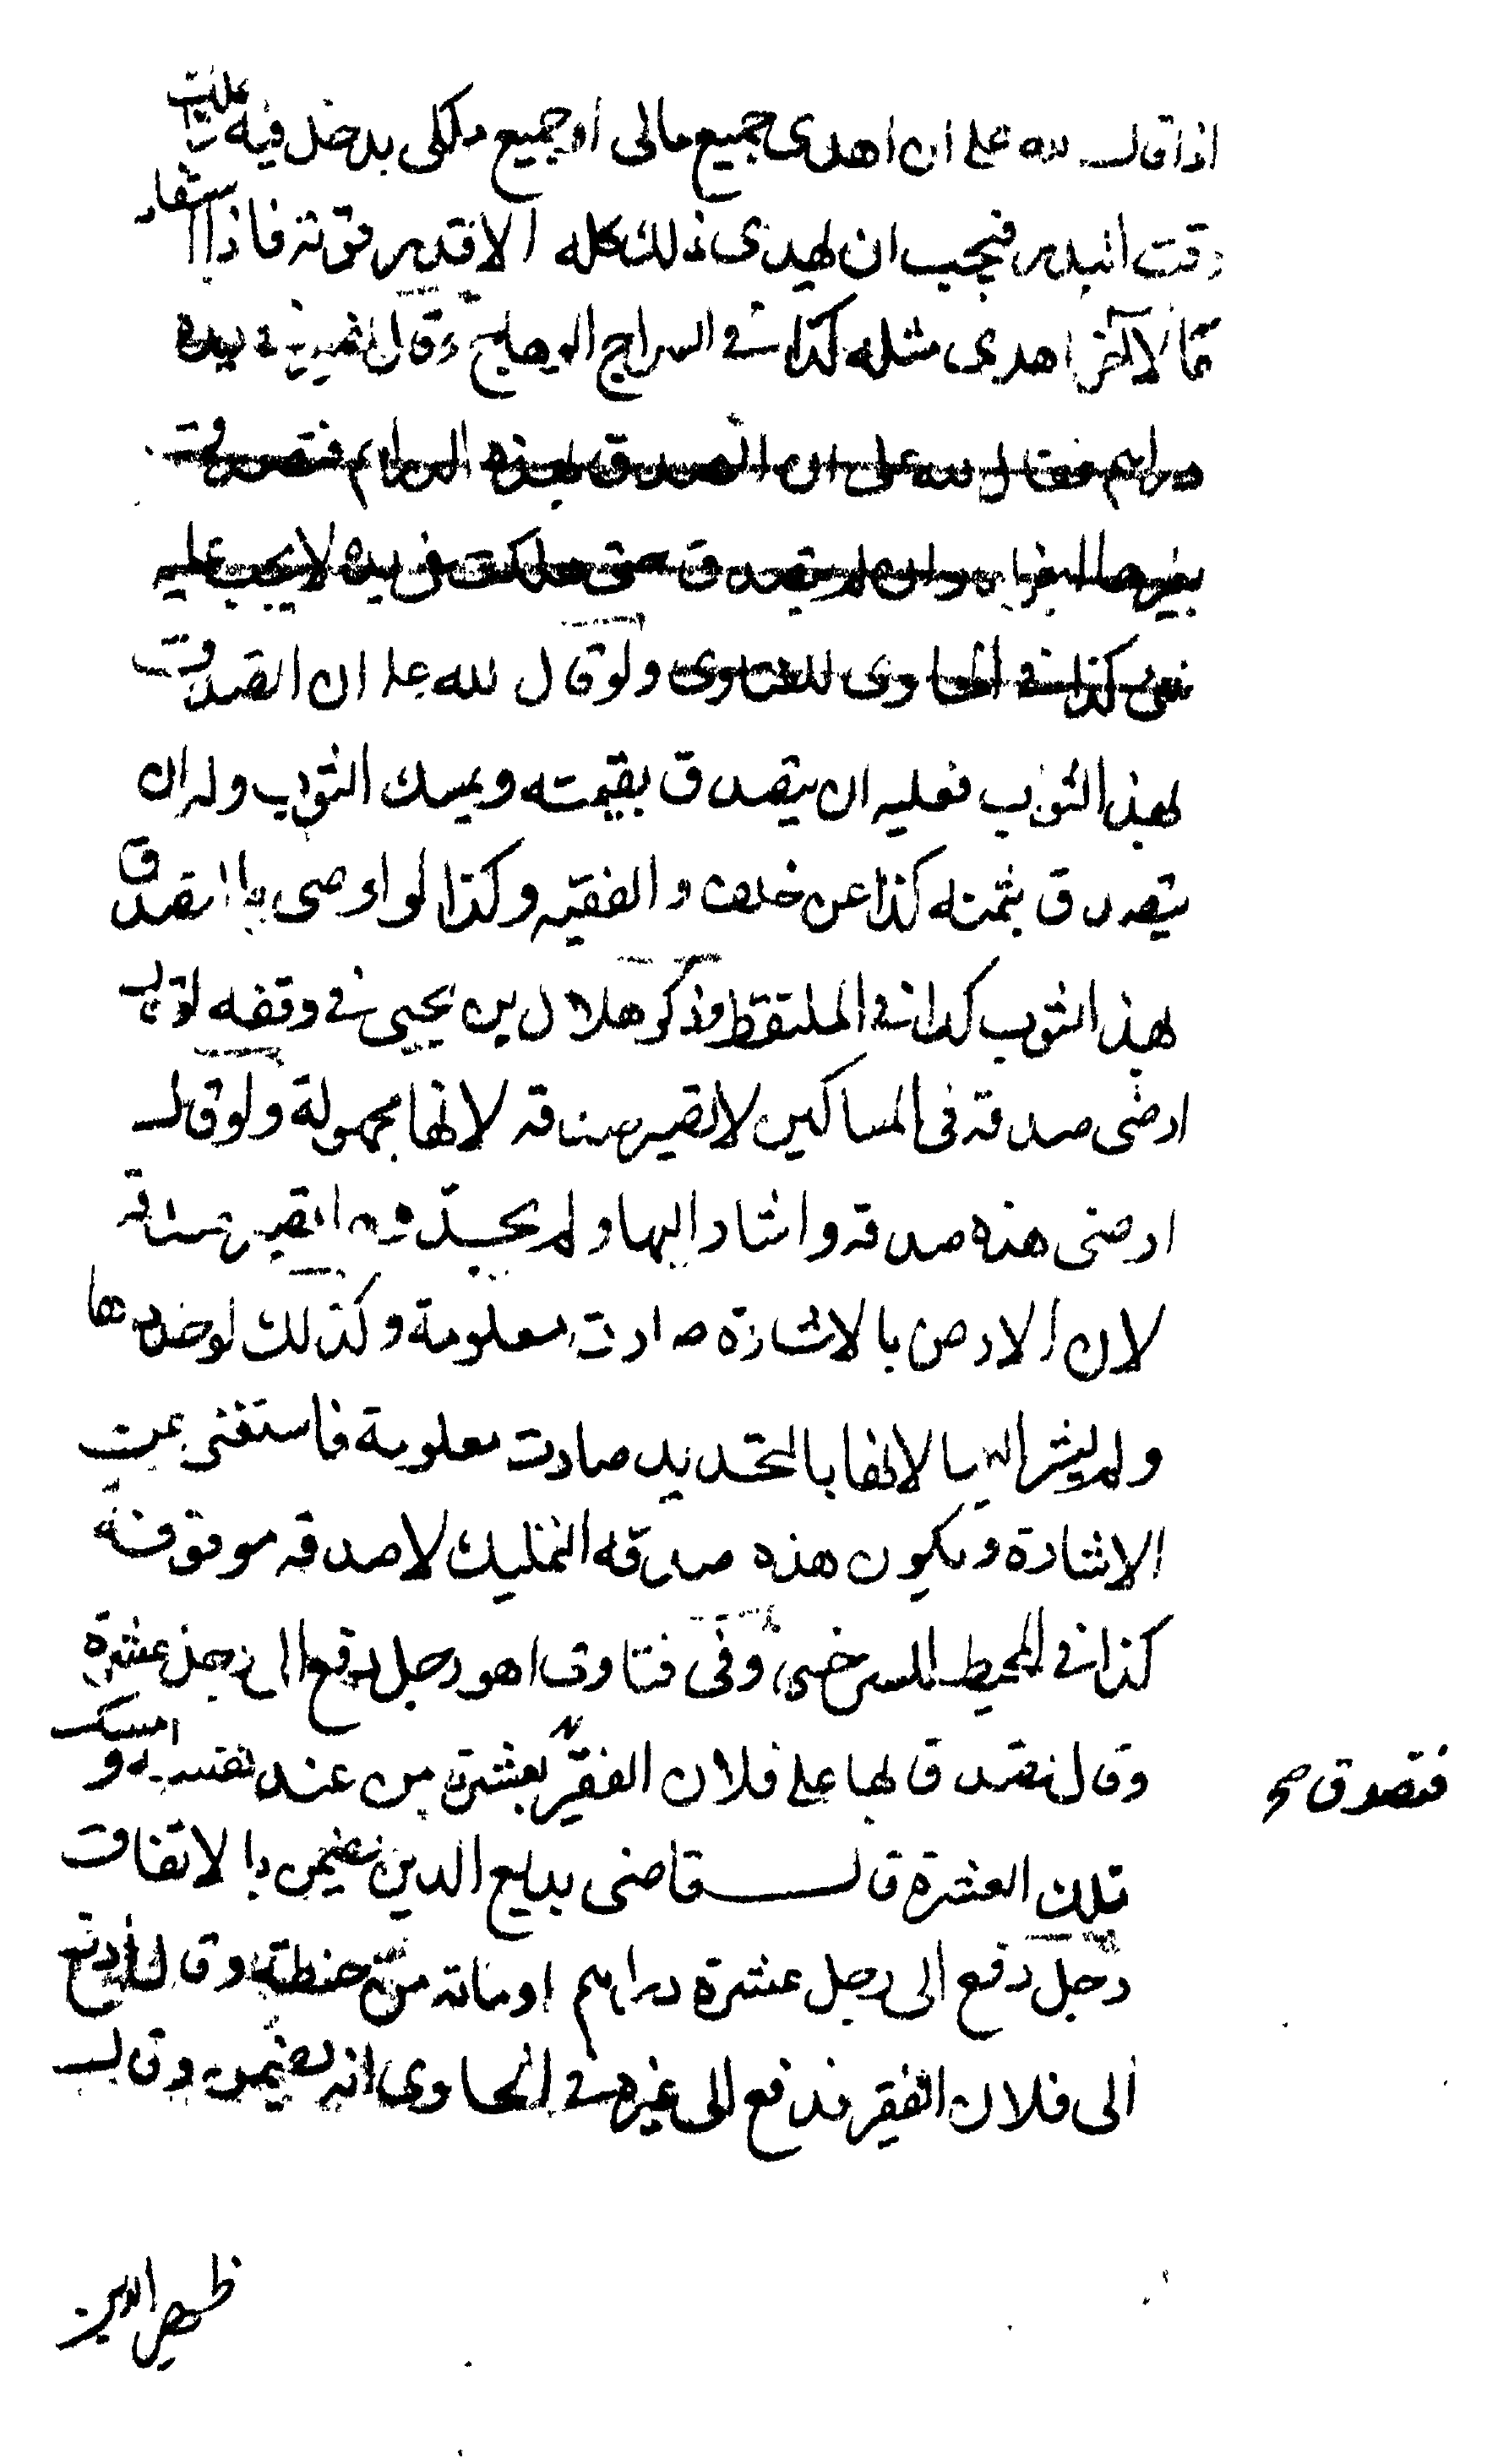 اذا قال لله على ان اهدى جميع مالى او جميع ملكى يدخل فيه ما يملك
وقت النذر فيجب ان يهدى ذلك كله الا قدر قوته فاذا استفاد
مالا آخر اهدى مثله كذا فى السراج الوهاج وقال فى يده
دراهم فقال لله على ان اتصدق بهذه الدراهم فتصدق
بغيرها وان لم يتصدق حتى هلكت فى يده لا يجب عليه
شئ كذا فى الحاوى للفتاوى ولو قال لله على ان اتصدق
بهذا الثوب فعليه ان يتصدق بقيمته ويمسك الثوب وله ان
يتصدق بثمنه كذا عن خلف والفقيه وكذا لو اوصى بان يتصدق
بهذا الثوب كذا فى الملتقط وذكر هلال بن يحيى فى وقفه لو قال
ارضى صدقة فى المساكين لا تصير صدقة لانها مجهولة ولو قال
ارضى هذه صدقة واشار اليها ولم يحددها تصير صدقة
لان الارض بالاشارة صارت معلومة وكذلك لو حددها
ولم يشر اليها لانها بالتحديد صارت معلومة فاستغنى عن
الاشارة ويكون هذه صدقة التمليك لا صدقة موقوفة
كذا فى المحيط للسرخسى وفى فتاوى اهو رجل دفع الى رجل عشرة
وقال تصدق بها على فلان الفقير بعشرة من عند نفسه وامسك
فتصدق صح
تلك العشرة قال قاضى بديع الدين يضمن بالاتفاق
رجل دفع الى رجل عشرة دراهم او مائة من حنطة وقال ادفع
الى فلان الفقير فدفع الى غيره فى الحاوى انه يضمن وقال
ظهير الدين